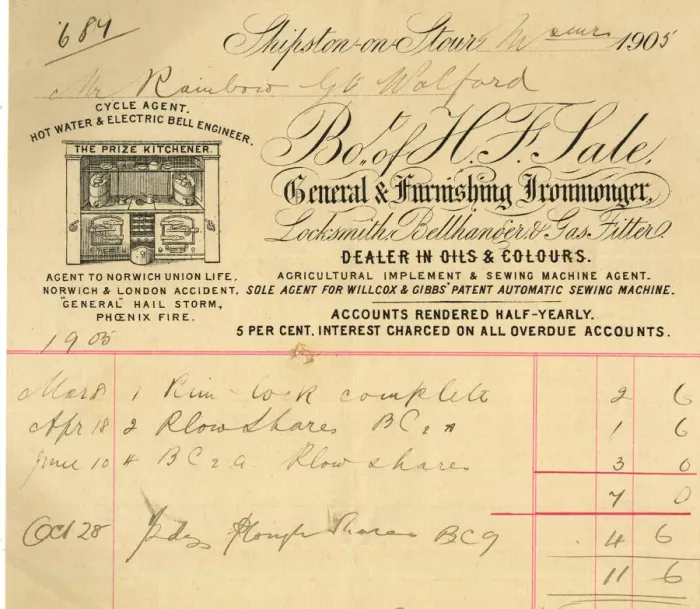 687
Shipston-on-Stour, 1905
Mr Rainbow Gt Wolford
CYCLE AGENT.
HOT WATER & ELECTRIC BELL ENGINEER.
THE PRIZE KITCHENER.
AGENT TO NORWICH UNION LIFE,
NORWICH & LONDON ACCIDENT,
"GENERAL" HAIL STORM,
PHŒNIX FIRE.
Bot. of H. F. Sale,
General & Furnishing Ironmonger,
Locksmith, Bellhanger & Gas Fitter.
DEALER IN OILS & COLOURS.
AGRICULTURAL IMPLEMENT & SEWING MACHINE AGENT.
SOLE AGENT FOR WILLCOX & GIBBS' PATENT AUTOMATIC SEWING MACHINE.
ACCOUNTS RENDERED HALF-YEARLY.
5 PER CENT. INTEREST CHARGED ON ALL OVERDUE ACCOUNTS.
1905
Mar 8 1 Rim lock complete 2 6
Apr 18 2 Plow Shares BC2A 1 6
June 10 4 BC2A Plow shares 3 0
7 0
Oct 28 Plough Shares 4 6
11 6